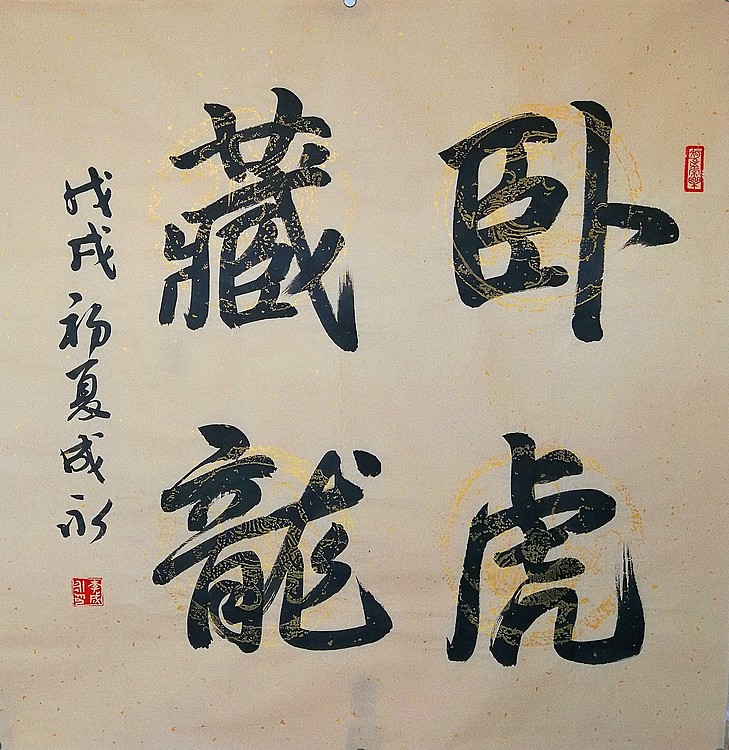 卧虎
藏龍
戊戌初夏成永